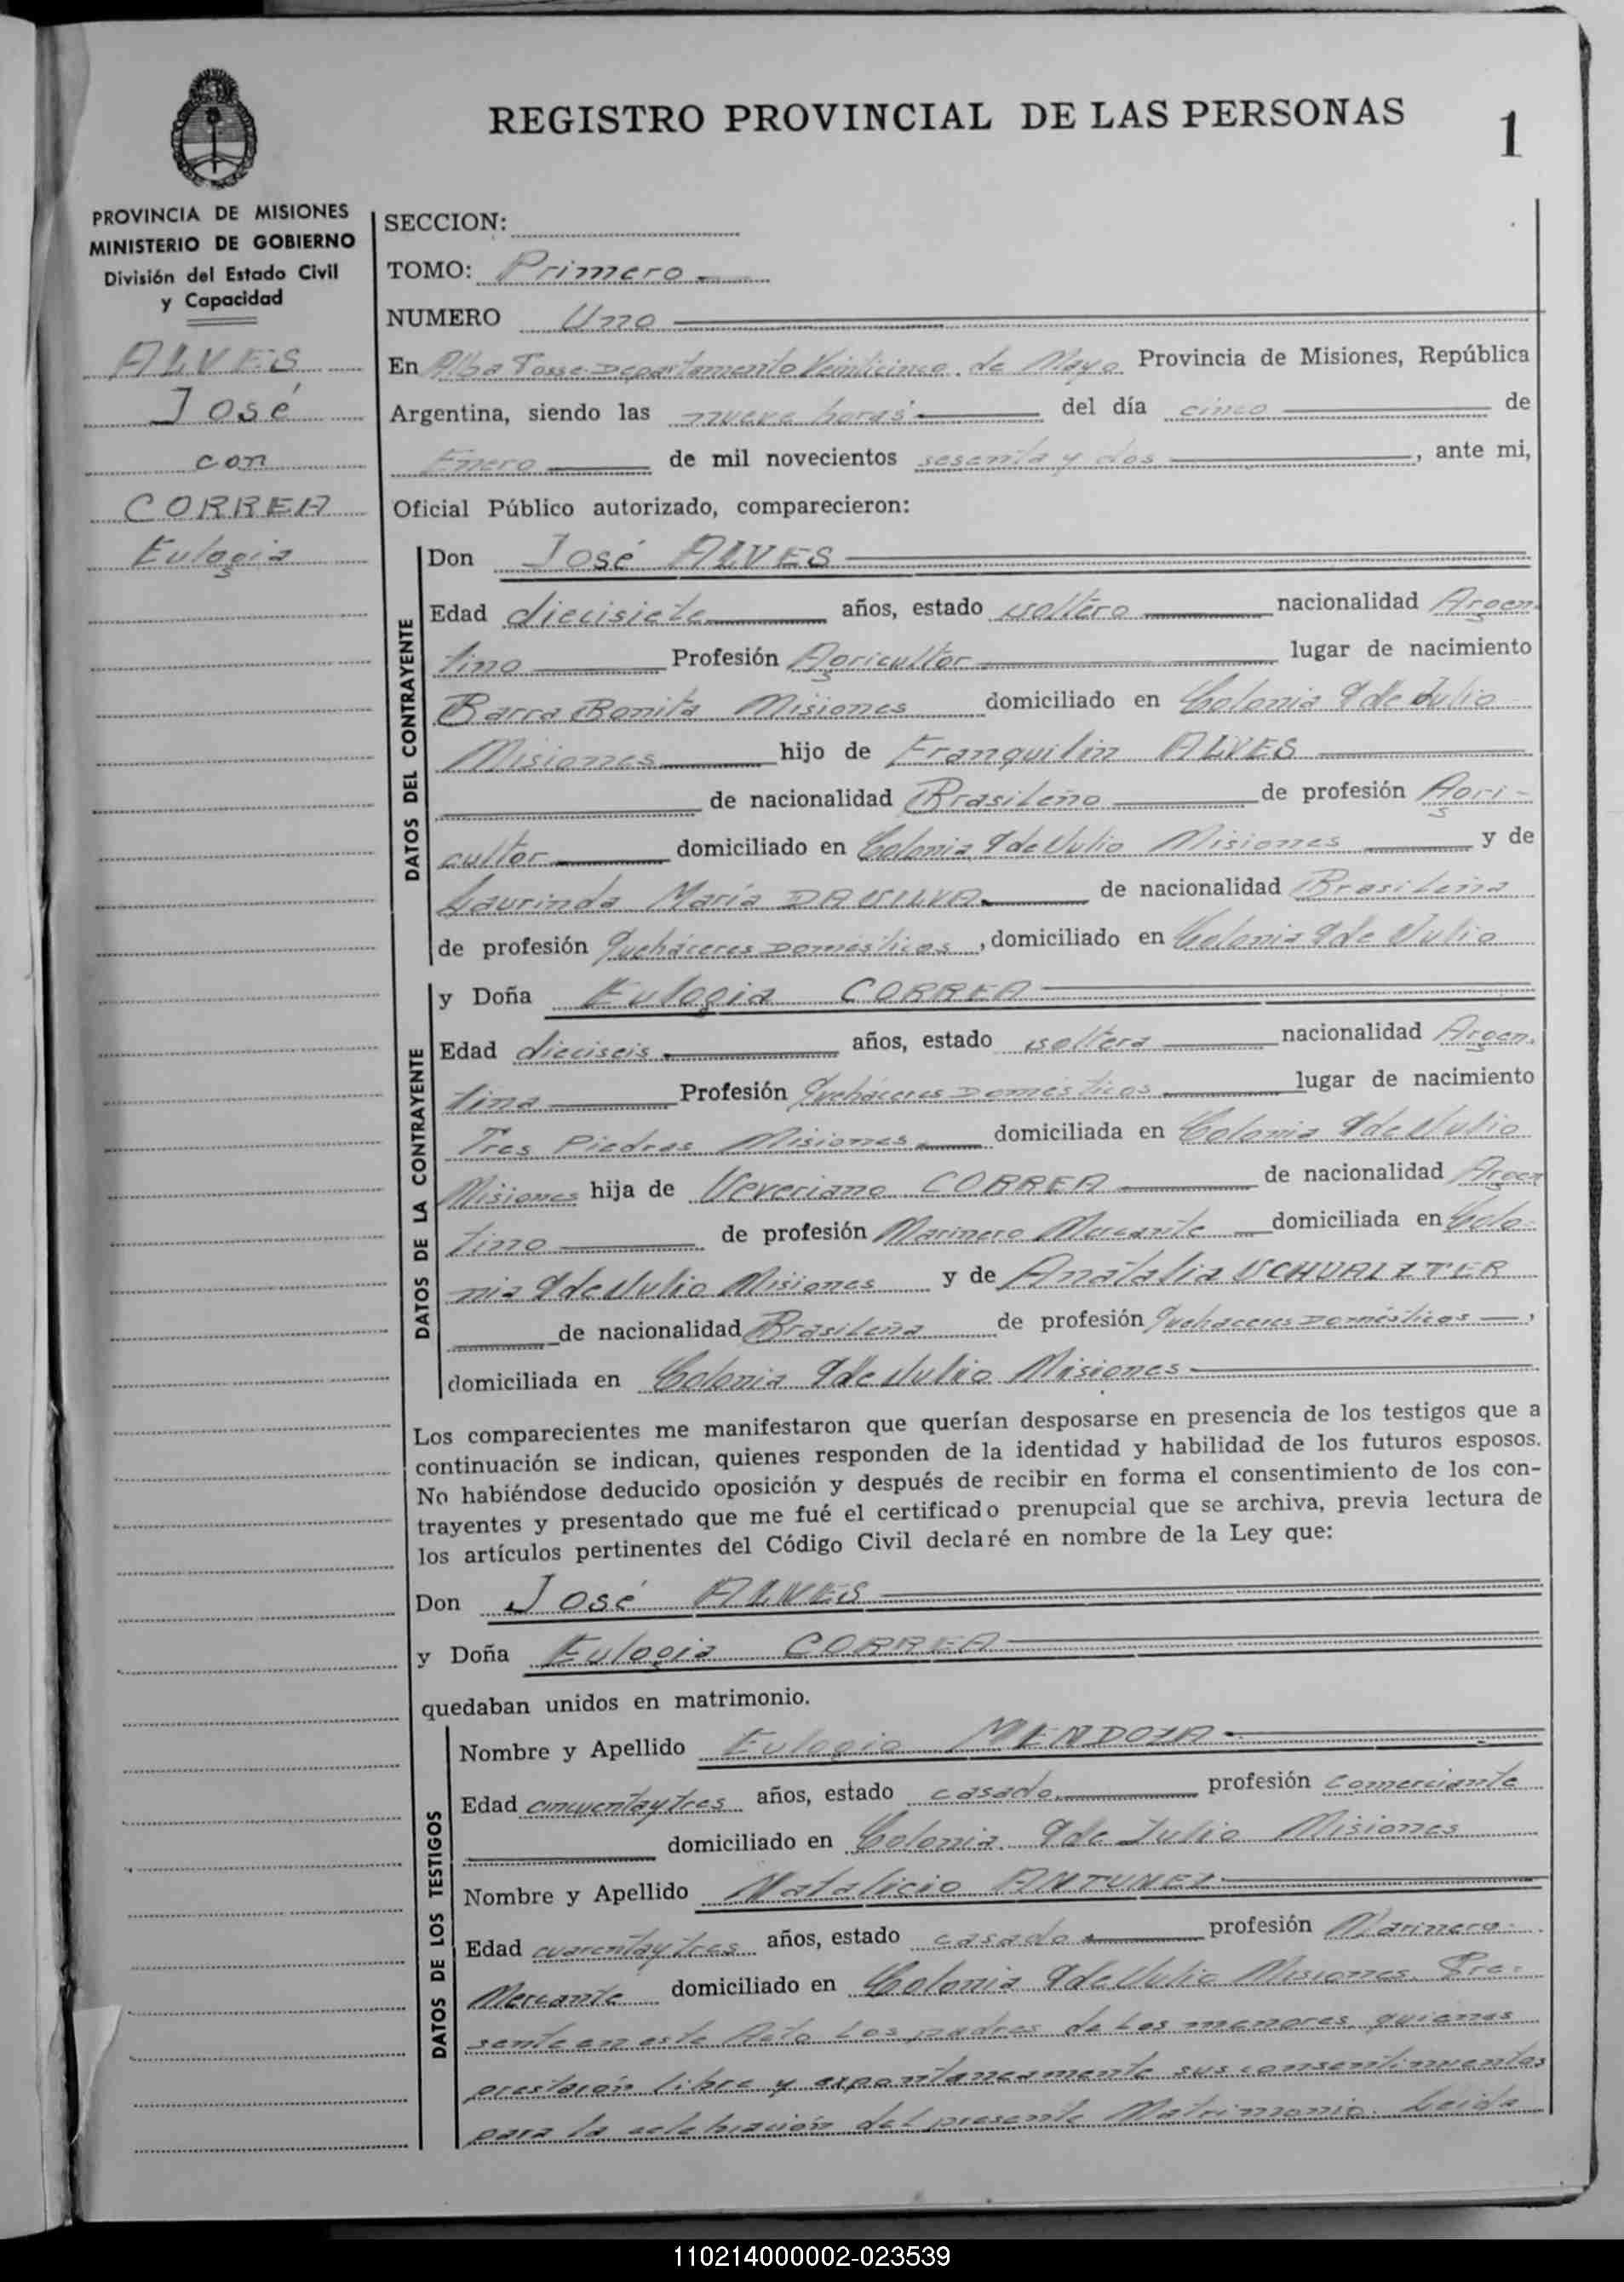 REGISTRO PROVINCIAL DE LAS PERSONAS
1
PROVINCIA DE MISIONES
MINISTERIO DE GOBIERNO
División del Estado Civil
y Capacidad
ALVES
José
con
CORREA
Eulogia
SECCION:
TOMO: Primero
NUMERO Uno
En Alba Posse Departamento Veinticinco de Mayo Provincia de Misiones, República
Argentina, siendo las nueve horas del día cinco de
Enero de mil novecientos sesenta y dos, ante mi,
Oficial Público autorizado, comparecieron:
DATOS DEL CONTRAYENTE
Don José ALVES
Edad diecisiete años, estado soltero nacionalidad Argen
tino Profesión Agricultor lugar de nacimiento
Barra Bonita Misiones domiciliado en Colonia 9 de Julio
Misiones hijo de Franquilin ALVES
de nacionalidad Brasileño de profesión Agri-
cultor domiciliado en Colonia 9 de Julio Misiones y de
Laurinda María DA SILVA de nacionalidad Brasileña
de profesión Quehaceres Domésticos, domiciliado en Colonia 9 de Julio
DATOS DE LA CONTRAYENTE
y Doña Eulogia CORREA
Edad dieciseis años, estado soltera nacionalidad Argen
tina Profesión Quehaceres Domésticos lugar de nacimiento
Tres Piedras Misiones domiciliada en Colonia 9 de Julio
Misiones hija de Severiano CORREA de nacionalidad Argen
tino de profesión Marinero Mercante domiciliada en Colo-
nia 9 de Julio Misiones y de Anatalia
de nacionalidad Brasileña de profesión Quehaceres Domésticos,
domiciliada en Colonia 9 de Julio Misiones
Los comparecientes me manifestaron que querían desposarse en presencia de los testigos que a
continuación se indican, quienes responden de la identidad y habilidad de los futuros esposos.
No habiéndose deducido oposición y después de recibir en forma el consentimiento de los con-
trayentes y presentado que me fué el certificado prenupcial que se archiva, previa lectura de
los artículos pertinentes del Código Civil declaré en nombre de la Ley que:
Don José ALVES
y Doña Eulogia CORREA
quedaban unidos en matrimonio.
DATOS DE LOS TESTIGOS
Nombre y Apellido Eulogio MENDOZA
Edad cincuentaytres años, estado casado profesión Comerciante
domiciliado en Colonia 9 de Julio Misiones
Nombre y Apellido Natalicio ANTUNEZ
Edad cuarentaytres años, estado casado profesión Marinero
Mercante domiciliado en Colonia 9 de Julio Misiones. Pre-
sente en este Acto los padres de los menores, quienes
prestarón libre y expontaneamente sus consentimientos
para la celebración del presente Matrimonio. Leida
110214000002-023539